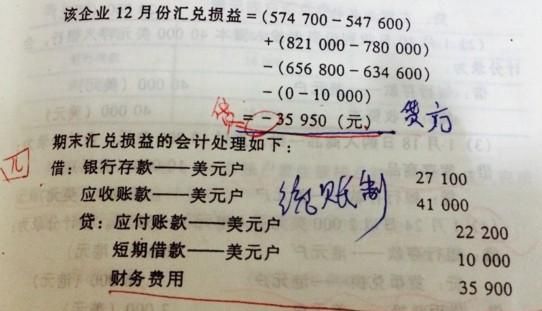 该企业12月份汇兑损益=(574 700-547 600)
+(821 000-780 000)
-(656 800-634 600)
-(0-10 000)
= -35 950 (元) 贷方
期末汇兑损益的会计处理如下:
借:银行存款——美元户 27 100
应收账款——美元户 41 000
贷:应付账款——美元户 22 200
短期借款——美元户 10 000
财务费用 35 900